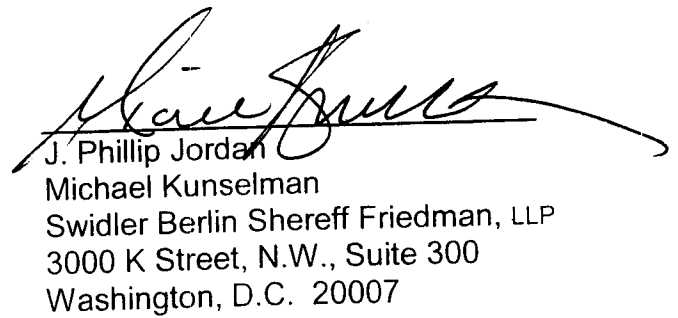 J. Phillip Jordan
Michael Kunselman
Swidler Berlin Shereff Friedman, LLP
3000 K Street, N.W., Suite 300
Washington, D.C. 20007